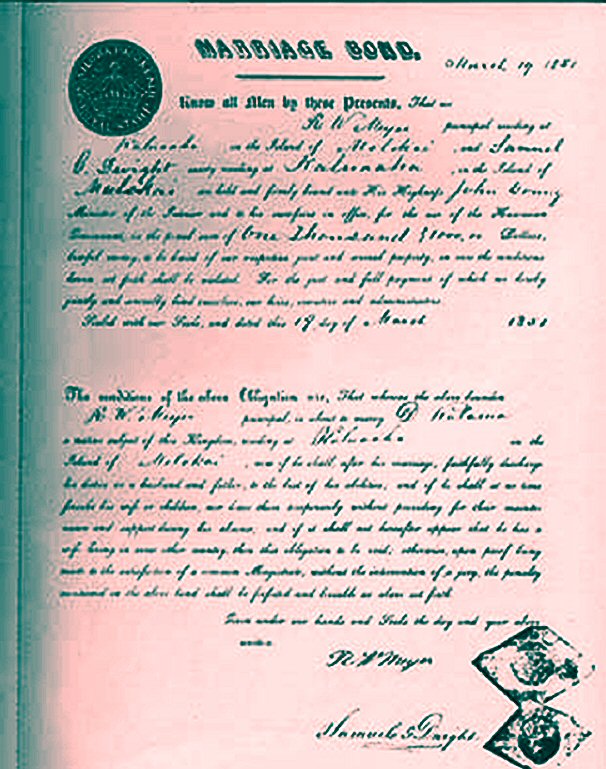 MARRIAGE BOND.
March 19 1851
Know all Men by these Presents, That we
R W Meyer principal residing at
in the Island of Molokai and Samuel
G. Dwight surety residing at Kaluaaha in the Island of
Molokai are held and firmly bound unto His Highness John Young
Minister of the Interior and to his successors in office, for the use of the Hawaiian
Government, in the penal sum of One Thousand Dollars,
lawful money, to be levied of our respective joint and several property, in case the conditions
herein set forth shall be violated. For the just and full payment of which we hereby
jointly and severally bind ourselves, our heirs, executors and administrators.
Sealed with our Seals, and dated this 19 day of March 1851
The conditions of the above Obligation are, That whereas the above bounden
R. W. Meyer principal, is about to marry
a native subject of this Kingdom, residing at in the
Island of Molokai, now if he shall, after his marriage, faithfully discharge
his duties as a husband and father, to the best of his abilities, and if he shall at no time
forsake his wife or children, nor leave them temporarily without providing for their mainten-
ance and support during his absence, and if it shall not hereafter appear that he has a
wife living in some other country, then this obligation to be void; otherwise, upon proof being
made to the satisfaction of a common Magistrate, without the intervention of a jury, the penalty
mentioned in the above bond shall be forfeited and leviable as above set forth.
Given under our hands and Seals the day and year above
written
R W Meyer
Samuel G. Dwight.